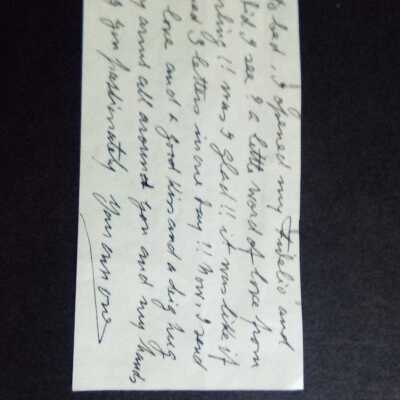 to bed, I opened my "Fidelio" and
did I see? a little word of love from
darling!! was I glad!! it was like if
3 letters in one day!! Now I send
love and a good kiss and a big hug
my arms all around you and my hands
you passionately Your own one